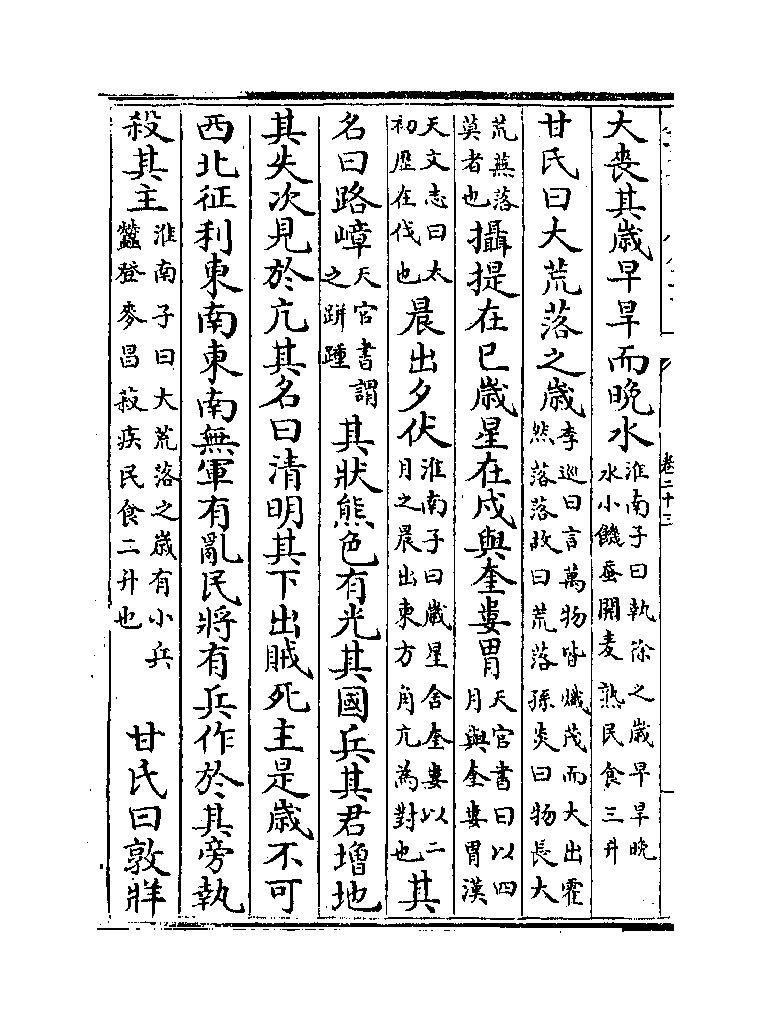 卷二十三
大喪其歲早旱而晩水淮南子曰執徐之歲早旱晩水小饑蚕開麦熟民食三升
甘氏曰大荒落之歲李巡曰言萬物皆熾茂而大出霍然落落故曰荒落孫炎曰物長大
荒蕪落莫者也攝提在巳歲星在戌與奎婁胃天官書曰以四月與奎婁胃漢
天文志曰太初歴在伐也晨出夕伏淮南子曰歲星舍奎婁以二月之晨出東方角亢為對也其
名曰路嶂天官書謂之跰踵其狀熊色有光其國兵其君增地
其失次見於亢其名曰清明其下出賊死主是歲不可
西北征利東南東南無軍有亂民將有兵作於其旁執
殺其主淮南子曰大荒落之歲有小兵蠶登麥昌菽疾民食二升也甘氏曰敦牂